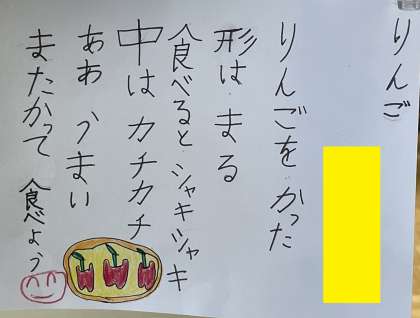 りんご
りんごを かった
形は まる
食べると シャキシャキ
中は カチカチ
ああ うまい
またかって 食べよう